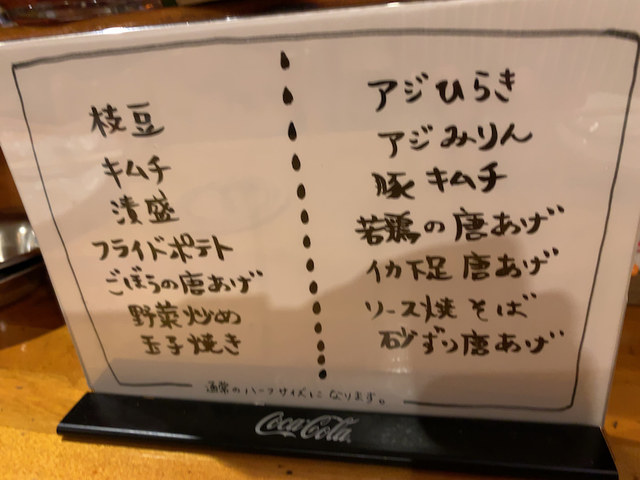 枝豆
キムチ
漬盛
フライドポテト
ごぼうの唐あげ
野菜炒め
玉子焼き
アジひらき
アジみりん
豚キムチ
若鶏の唐あげ
イカ下足唐あげ
ソース焼そば
砂ずり唐あげ
通常のハーフサイズになります。
Coca-Cola